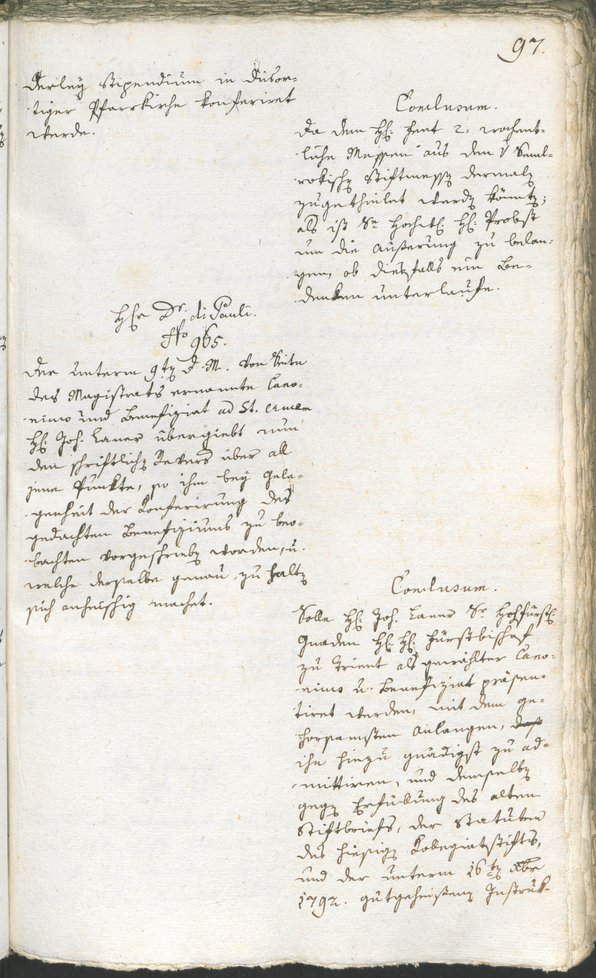 97.
derley Stipendium in Dusor-
tiger Pfarrkirche konferiret
werde.
Conclusum.
Da dem H: 2. wochent-
liche Messen aus den
Stiftmessen dermalen
zugetheilet werden könnten;
als ist Sr Hochw: H: Probst
um die Äußerung zu belan-
gen, ob diesfalls ein Be-
denken unterlaufe.
Her Dr. di Pauli.
No 965.
Der unterm 9ten d. M. von Seite
des Magistrats ernannte Cano-
nicus und Benefiziat ad St.
H: Joh: Laner übergiebt nun
den schriftlichen Revers über all
jene Punkte, so ihm bey Gele-
genheit der Konferirung des
gedachten Benefiziums zu beo-
bachten vorgeschrieben worden, u.
welche derselbe genau zu halten
sich anheischig machet.
Conclusum.
Solle H: Joh: Laner Sr Hochfürstl:
Gnaden H: H: Fürstbischof
zu Trient als gewählter Cano-
nicus u. Benefiziat präsen-
tiret werden, mit dem ge-
horsamsten Anlangen,
ihn hiezu gnädigst zu ad-
mittiren, und demselben
gegen Erfüllung des alten
Stiftbriefs, der Statuten
des hiesigen Kollegiatstifts,
und der unterm 16ten
1792. gutgeheißenen Instruk-